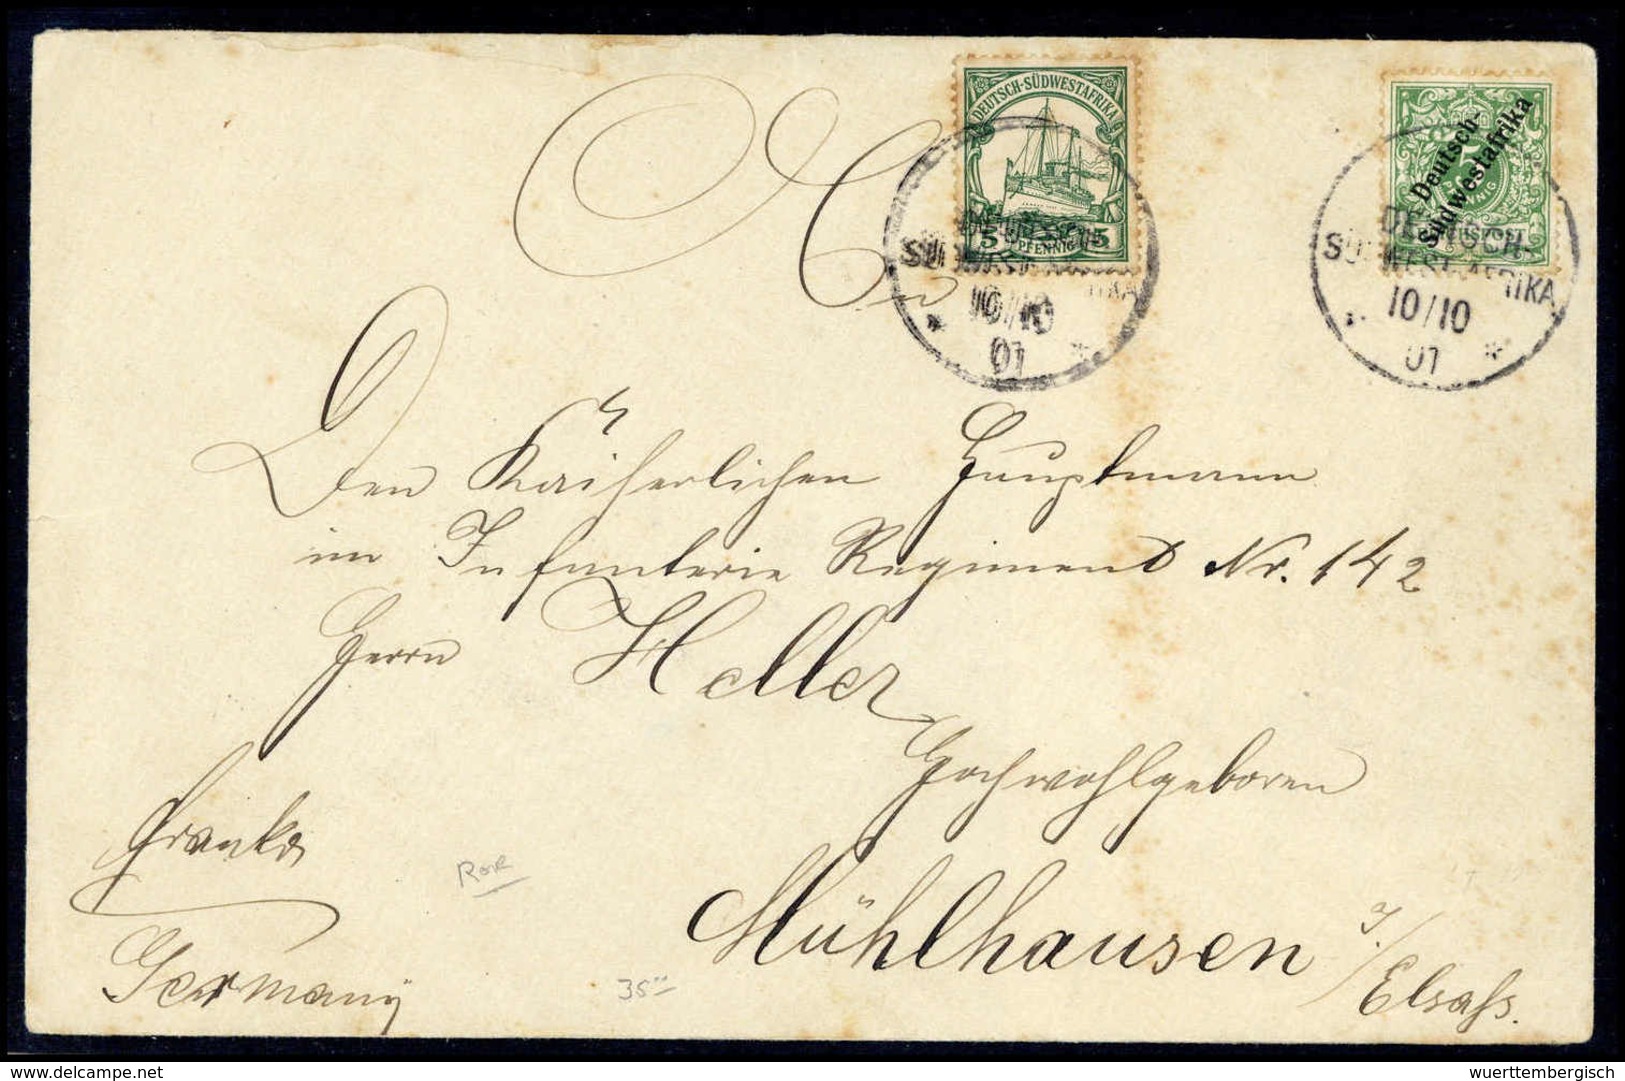 DEUTSCH-SÜDWESTAFRIKA
5 PFENNIG 5
Deutsch-
Südwestafrika
5
REICHSPOST
SÜDWEST-AFRIKA
10/10
01
DEUTSCH-
SÜDWEST-AFRIKA
10/10
01
An
Den Kaiserlichen Hauptmann
im Infanterie Regiment Nr. 142
Herrn Heller
Hochwohlgeboren
Franko
Mühlhausen i/Elsass.
Germany
35
delcampe.net
wuerttembergisch